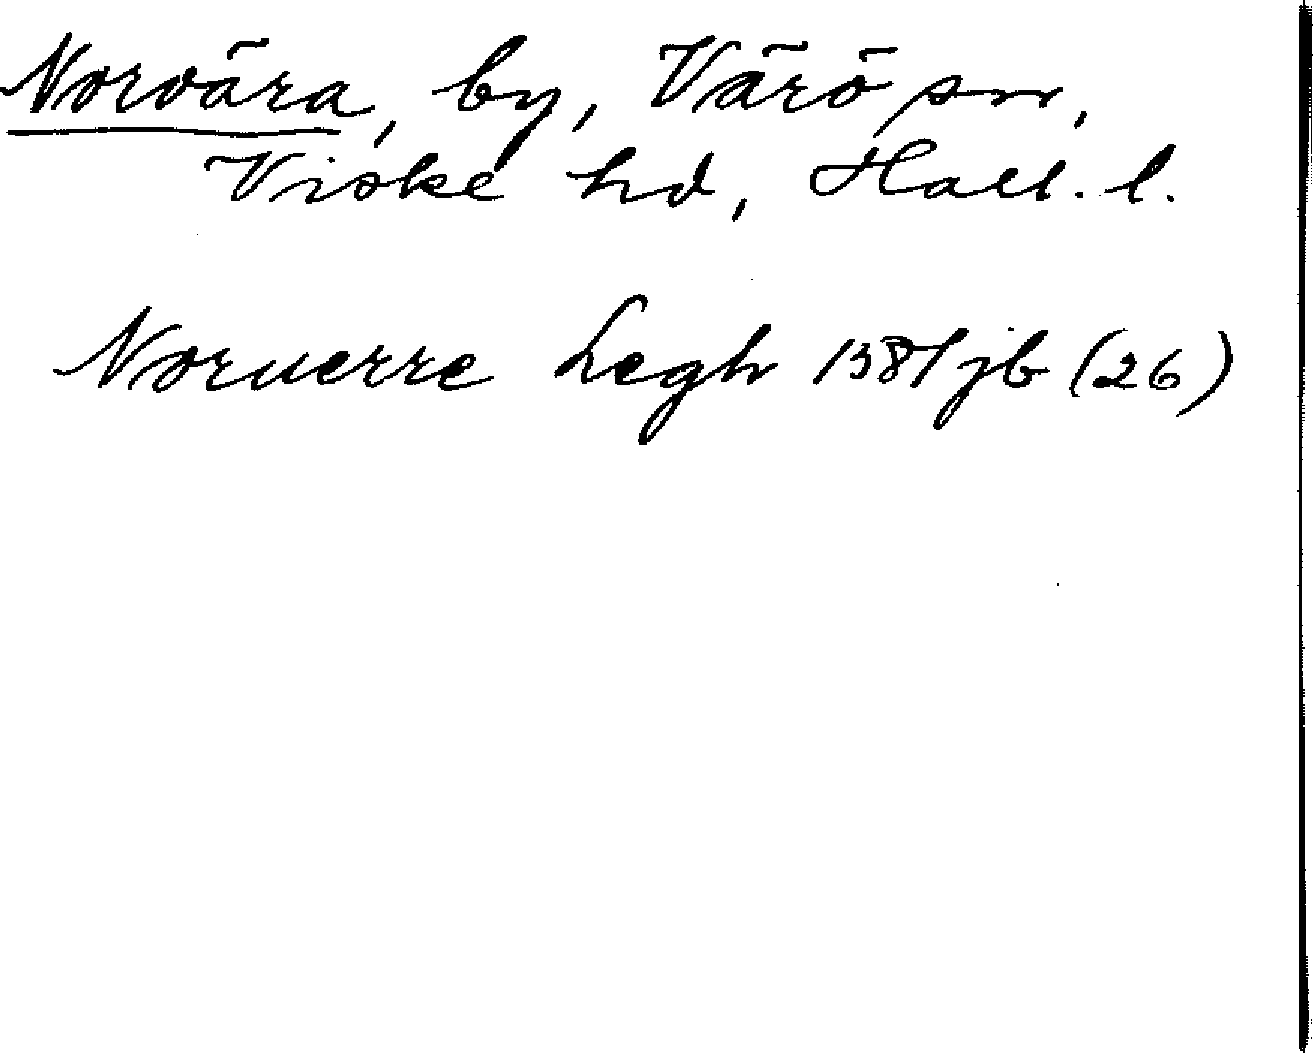 Norvära, by, Värö sn,
Viske hd, Hall. l.
Noruerre Legh 1581 jb (26)